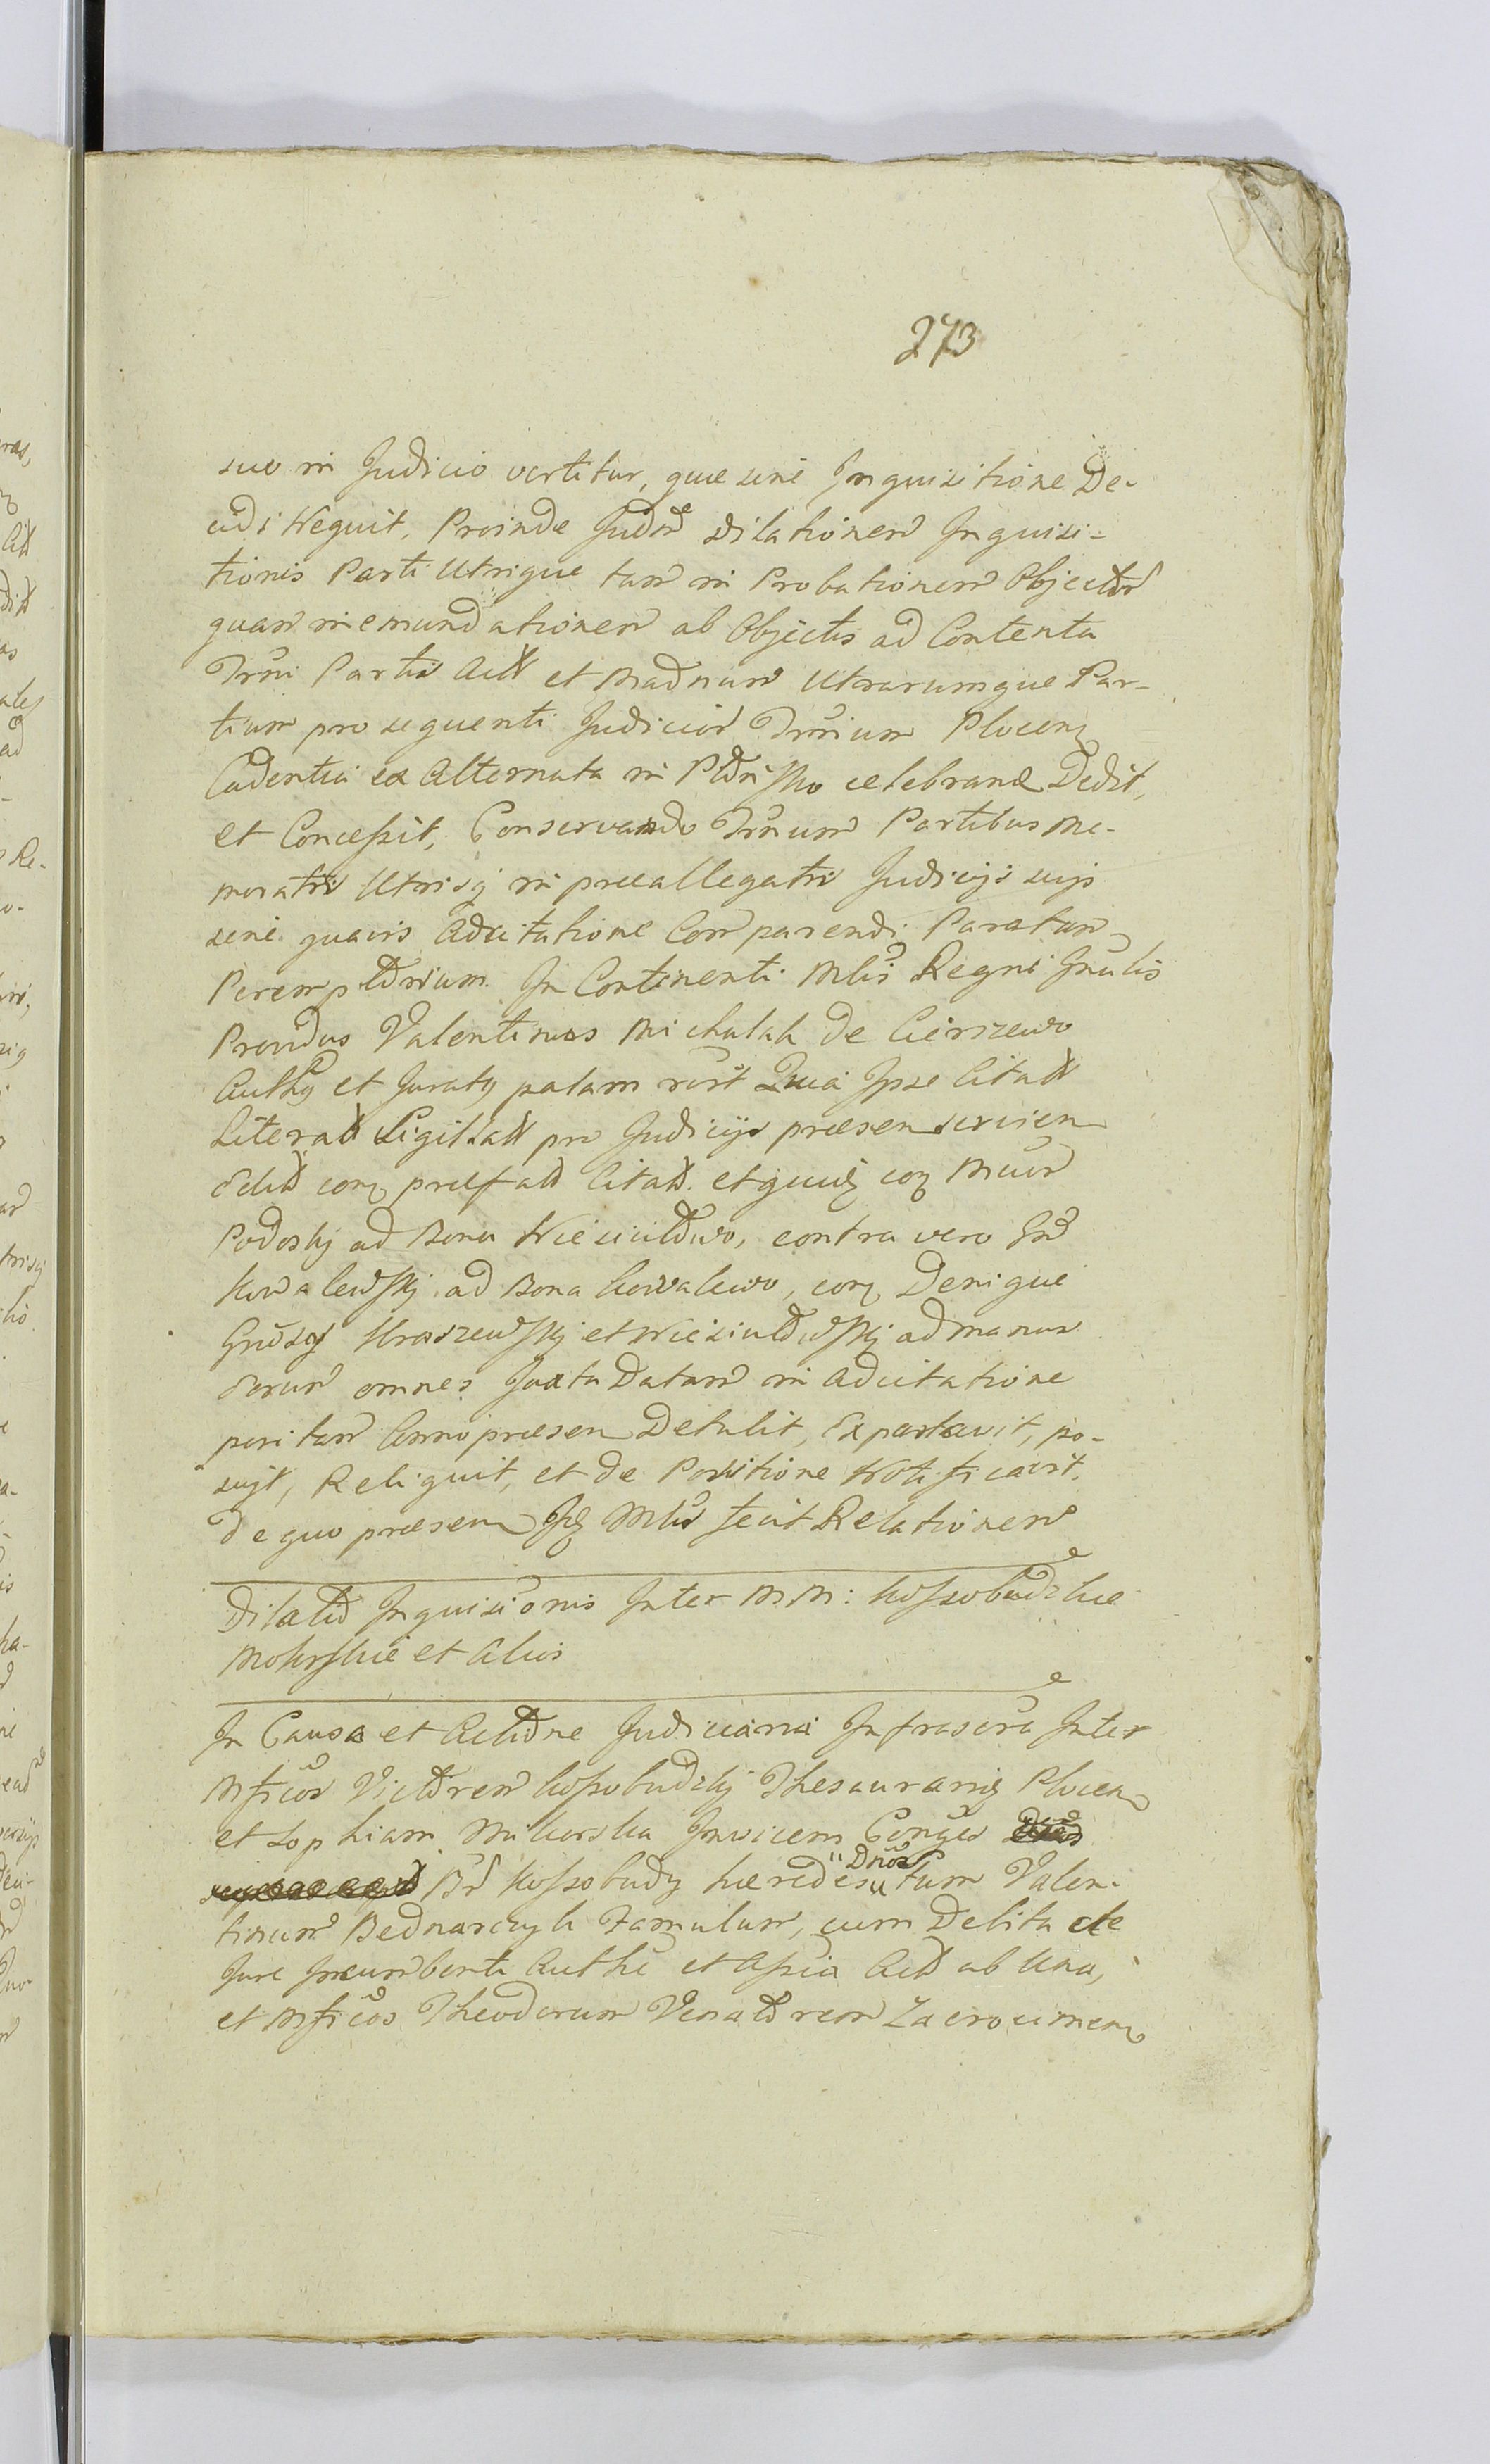 273
suo in Judicio vertitur, quae sine Inquisitione De-
cidi Nequit, Proinde Judm Dilationem Inquisi-
tionis Parti Utrique tam in Probationem Objector
quam in emundationem ab Objectis ad Contenta
Trni Partis Act et Madnum Utrarumque Par-
tium pro sequenti Judicior Trnium Plocen
Cadentia ex Alternata in celebrand Dedit,
et Concessit, Conservando Trnum Partibus Me-
moratis Utrisq in praeallegatis Judicijs suis
sine quavis Adcitatione Comparendi Paratum
Peremptorium. In Continenti Mlis Regni Gnlis
Providus Valentinus Michalak de Cierszewo
Authq et Juratq palam rcit Quia Ipse Citatt
Literatt Sigillatt pro Judicijs praesen servien
Edit corq praefatt Citatt. et quidq coq Mcum
Podoskj ad Bona Niesciultowo, contra vero Gnd
Kowalewskj ad Bona Kowalewo, corq Denique
Gnsos Kraszewskj et Niesiultowskj ad manus
Eorum omnes Juxta Datam in Adcitatione
positam Anno praesen Detulit, Exportavit, po-
suit, Reliquit, et de Positione Notificavit,
de quo praesen Idq Mlis fecit Relationem
Dilatio Inquisionis Inter M.M: Kossobudzkie
Mokrskie et Alios
In Causa et Actione Judiciaria Infrascra Inter
Mficos Victorem Kossobudzkj Thesaurariq Plocen
et Sophiam Mikorska Invicem Conges
Br Kossobudy haeredes "Dnos" Tum Valen-
tinum Bednarczyk Famulum, cum Debita de
Jure Incumbenti Authe et Assia Act ab Una,
et Mficos Theodorum Venatorem Zacrocimen